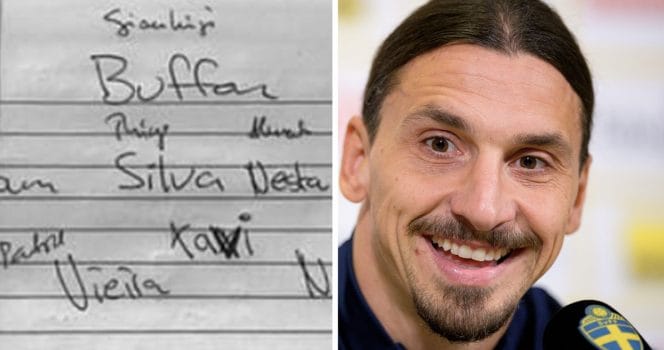 Gianluigi
Buffon
Thiago
Silva Nesta
Xavi
Vieira N